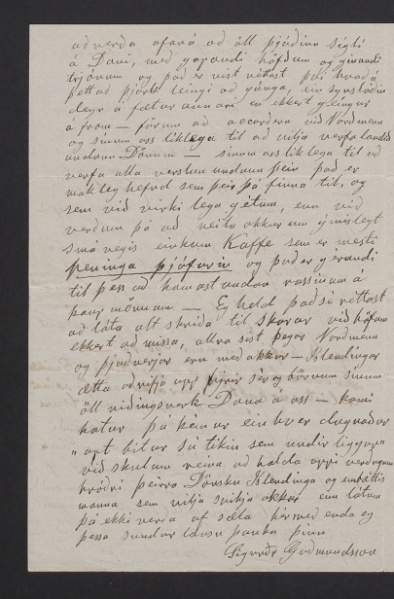 að verða ofan á að öll þjóðin sigli
á Dani, með gapandi höfðum og gínandi
trjónum og það er víst réttast því hvað á
þetta þjark leingi að gánga, ein synslóðin
deyr á fætur annari en ekkert geingur
á fram — förum að accordera við Nordmenn
og sínum oss líklega til að vilja verfa landið
undann Dönum — sínum oss líklega til að
verfa alla verslun undann þeim það er
makleg hefnd sem þeir þá finna til, og
sem við virkilega getum, enn við
verðum þá að neita okkur um ýmislegt
smá vegis einkum Kaffe sem er mesti
peninga þjófurin og það er gerandi
til þess að komast undan rassinum á
þeim mönnum — Eg held það sé réttast
að láta alt skríða til skarar við höfum
ekkert að missa, allra síst þegar Nordmenn
og þjóðverjar eru með okkur — Islendingar
ætta að rifja upp fyrir sér og börnum sínum
öll níðingsverk Dana á oss — komi
hatur þá kémur einhver dagnaður
"opt bítur sú tíkin sem undir liggur"
við skulum reina að halda uppi verðugum
hróðri þeirra Dönsku Islendinga og embættis
manna sem vilja svíkja okkur enn látum
þá ekki verða af sæta hér með enda eg
þessa sundur lausu þanka þinn
Sigurðr Guðmundsson